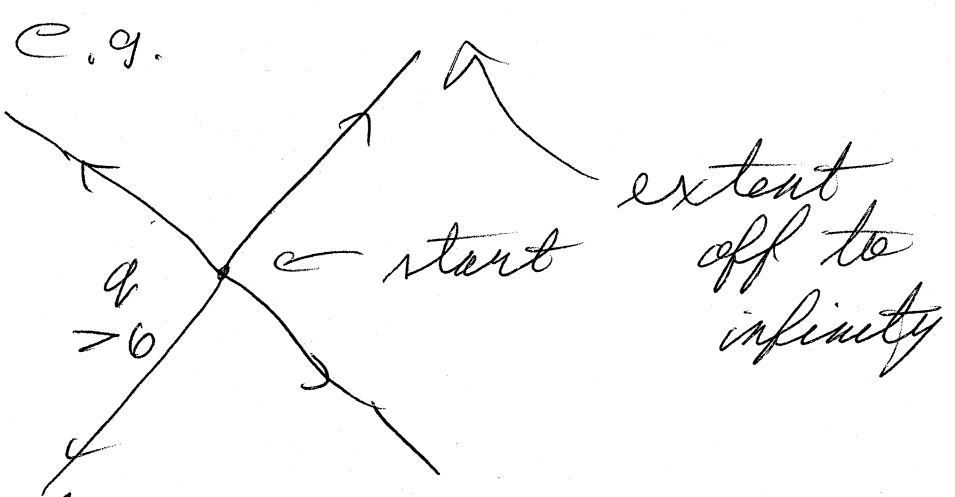 e.g.
extent
off to
infinity
← start
q
>0